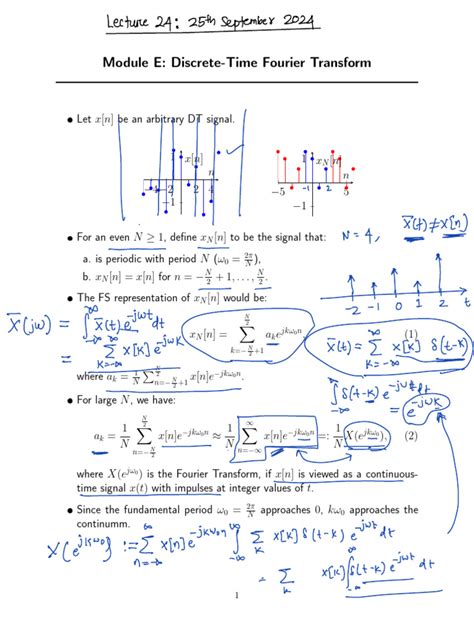 Lecture 24: 25th September 2024
Module E: Discrete-Time Fourier Transform
• Let x[n] be an arbitrary DT signal.
1 x[n]
n
-4 -2 2 4
-1
1 x_N[n]
n
-5 -1 1 2 5
-1
• For an even N ≥ 1, define x_N[n] to be the signal that:
N = 4,
x̄(t) ≠ x[n]
a. is periodic with period N (ω₀ = 2π/N),
b. x_N[n] = x[n] for n = -N/2 + 1, . . . , N/2.
-2 -1 0 1 2
• The FS representation of x_N[n] would be:
X̄(jω) = ∫_{-∞}^{∞} x̄(t) e^{-jωt} dt
= Σ_{k=-∞}^{∞} x[k] e^{-jωk}
x_N[n] = Σ_{k=-N/2+1}^{N/2} a_k e^{jkω₀n} (1)
x̄(t) = Σ_{k=-∞}^{∞} x[k] δ(t-k)
where a_k = 1/N Σ_{n=-N/2+1}^{N/2} x[n]e^{-jkω₀n}.
∫_{-∞}^{∞} δ(t-k) e^{-jωt} dt
= e^{-jωk}
• For large N, we have:
a_k = 1/N Σ_{n=-N/2+1}^{N/2} x[n]e^{-jkω₀n} ≈ 1/N Σ_{n=-∞}^{∞} x[n]e^{-jkω₀n} =: 1/N X(e^{jkω₀}), (2)
where X(e^{jω₀}) is the Fourier Transform, if x[n] is viewed as a continuous-
time signal x(t) with impulses at integer values of t.
• Since the fundamental period ω₀ = 2π/N approaches 0, kω₀ approaches the
continumm.
X(e^{jkω₀}) := Σ_{n=-∞}^{∞} x[n] e^{-jkω₀n}
∫_{-∞}^{∞} Σ_k x[k] δ(t-k) e^{-jωt} dt
= Σ_k x[k] ∫_{-∞}^{∞} δ(t-k) e^{-jωt} dt
1